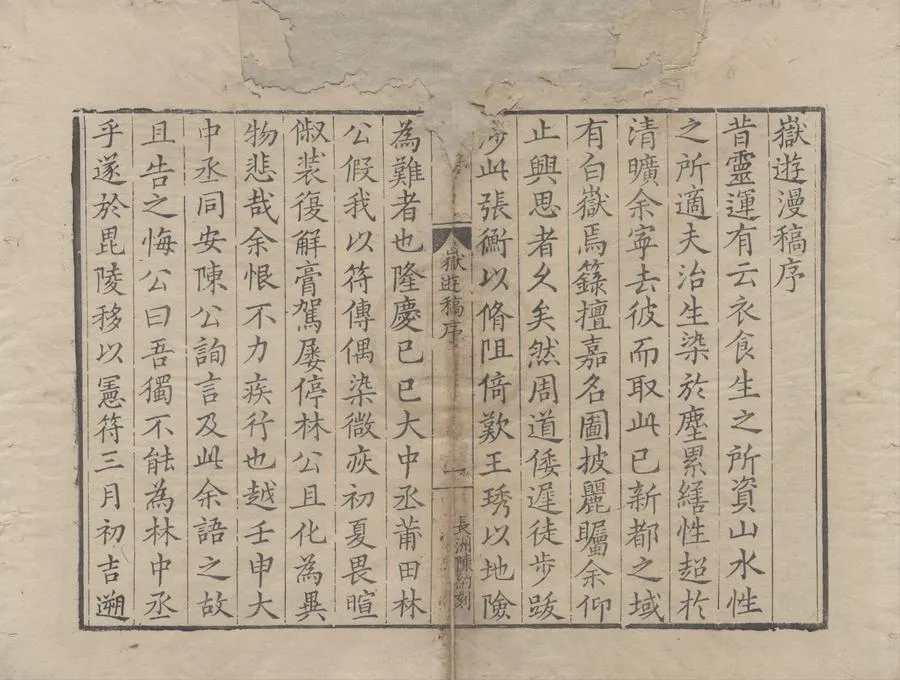 嶽遊漫稿序
昔靈運有云衣食生之所資山水性
之所適夫治生染於塵累繕性超於
清曠余寧去彼而取此已新都之域
有白嶽焉籙擅嘉名圖披麗矚余仰
止興思者久矣然周道倭遲徒步跋
涉此張衡以脩阻倚歎王琇以地險
嶽遊稿序
一
長洲陳約刻
為難者也隆慶己巳大中丞莆田林
公假我以符傳偶染微疢初夏畏暄
俶装復解膏駕屡停林公且化為異
物悲哉余恨不力疾行也越壬申大
中丞同安陳公詢言及此余語之故
且告之悔公曰吾獨不能為林中丞
乎遂於毘陵移以憲符三月初吉遡